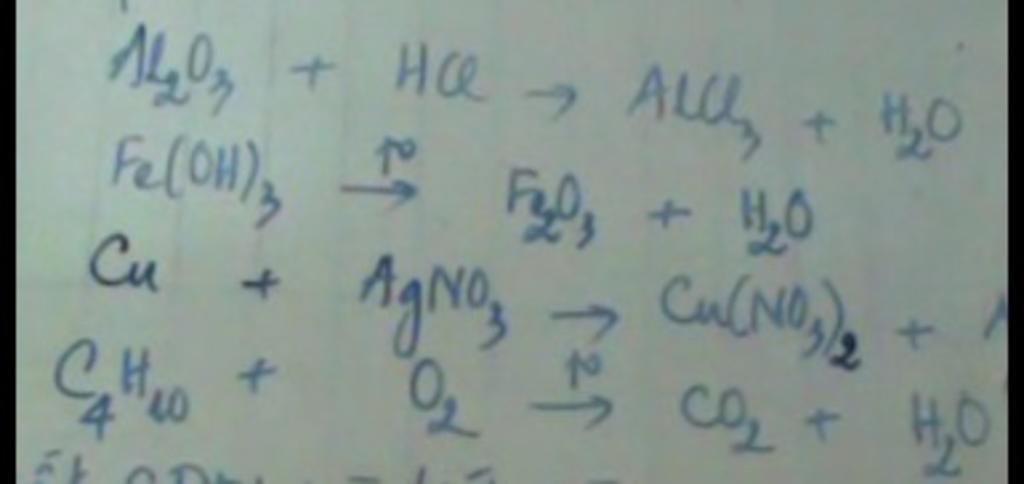 Al₂O₃ + HCl → AlCl₃ + H₂O
Fe(OH)₃ →t° Fe₂O₃ + H₂O
Cu + AgNO₃ → Cu(NO₃)₂ + A
C₄H₁₀ + O₂ →t° CO₂ + H₂O